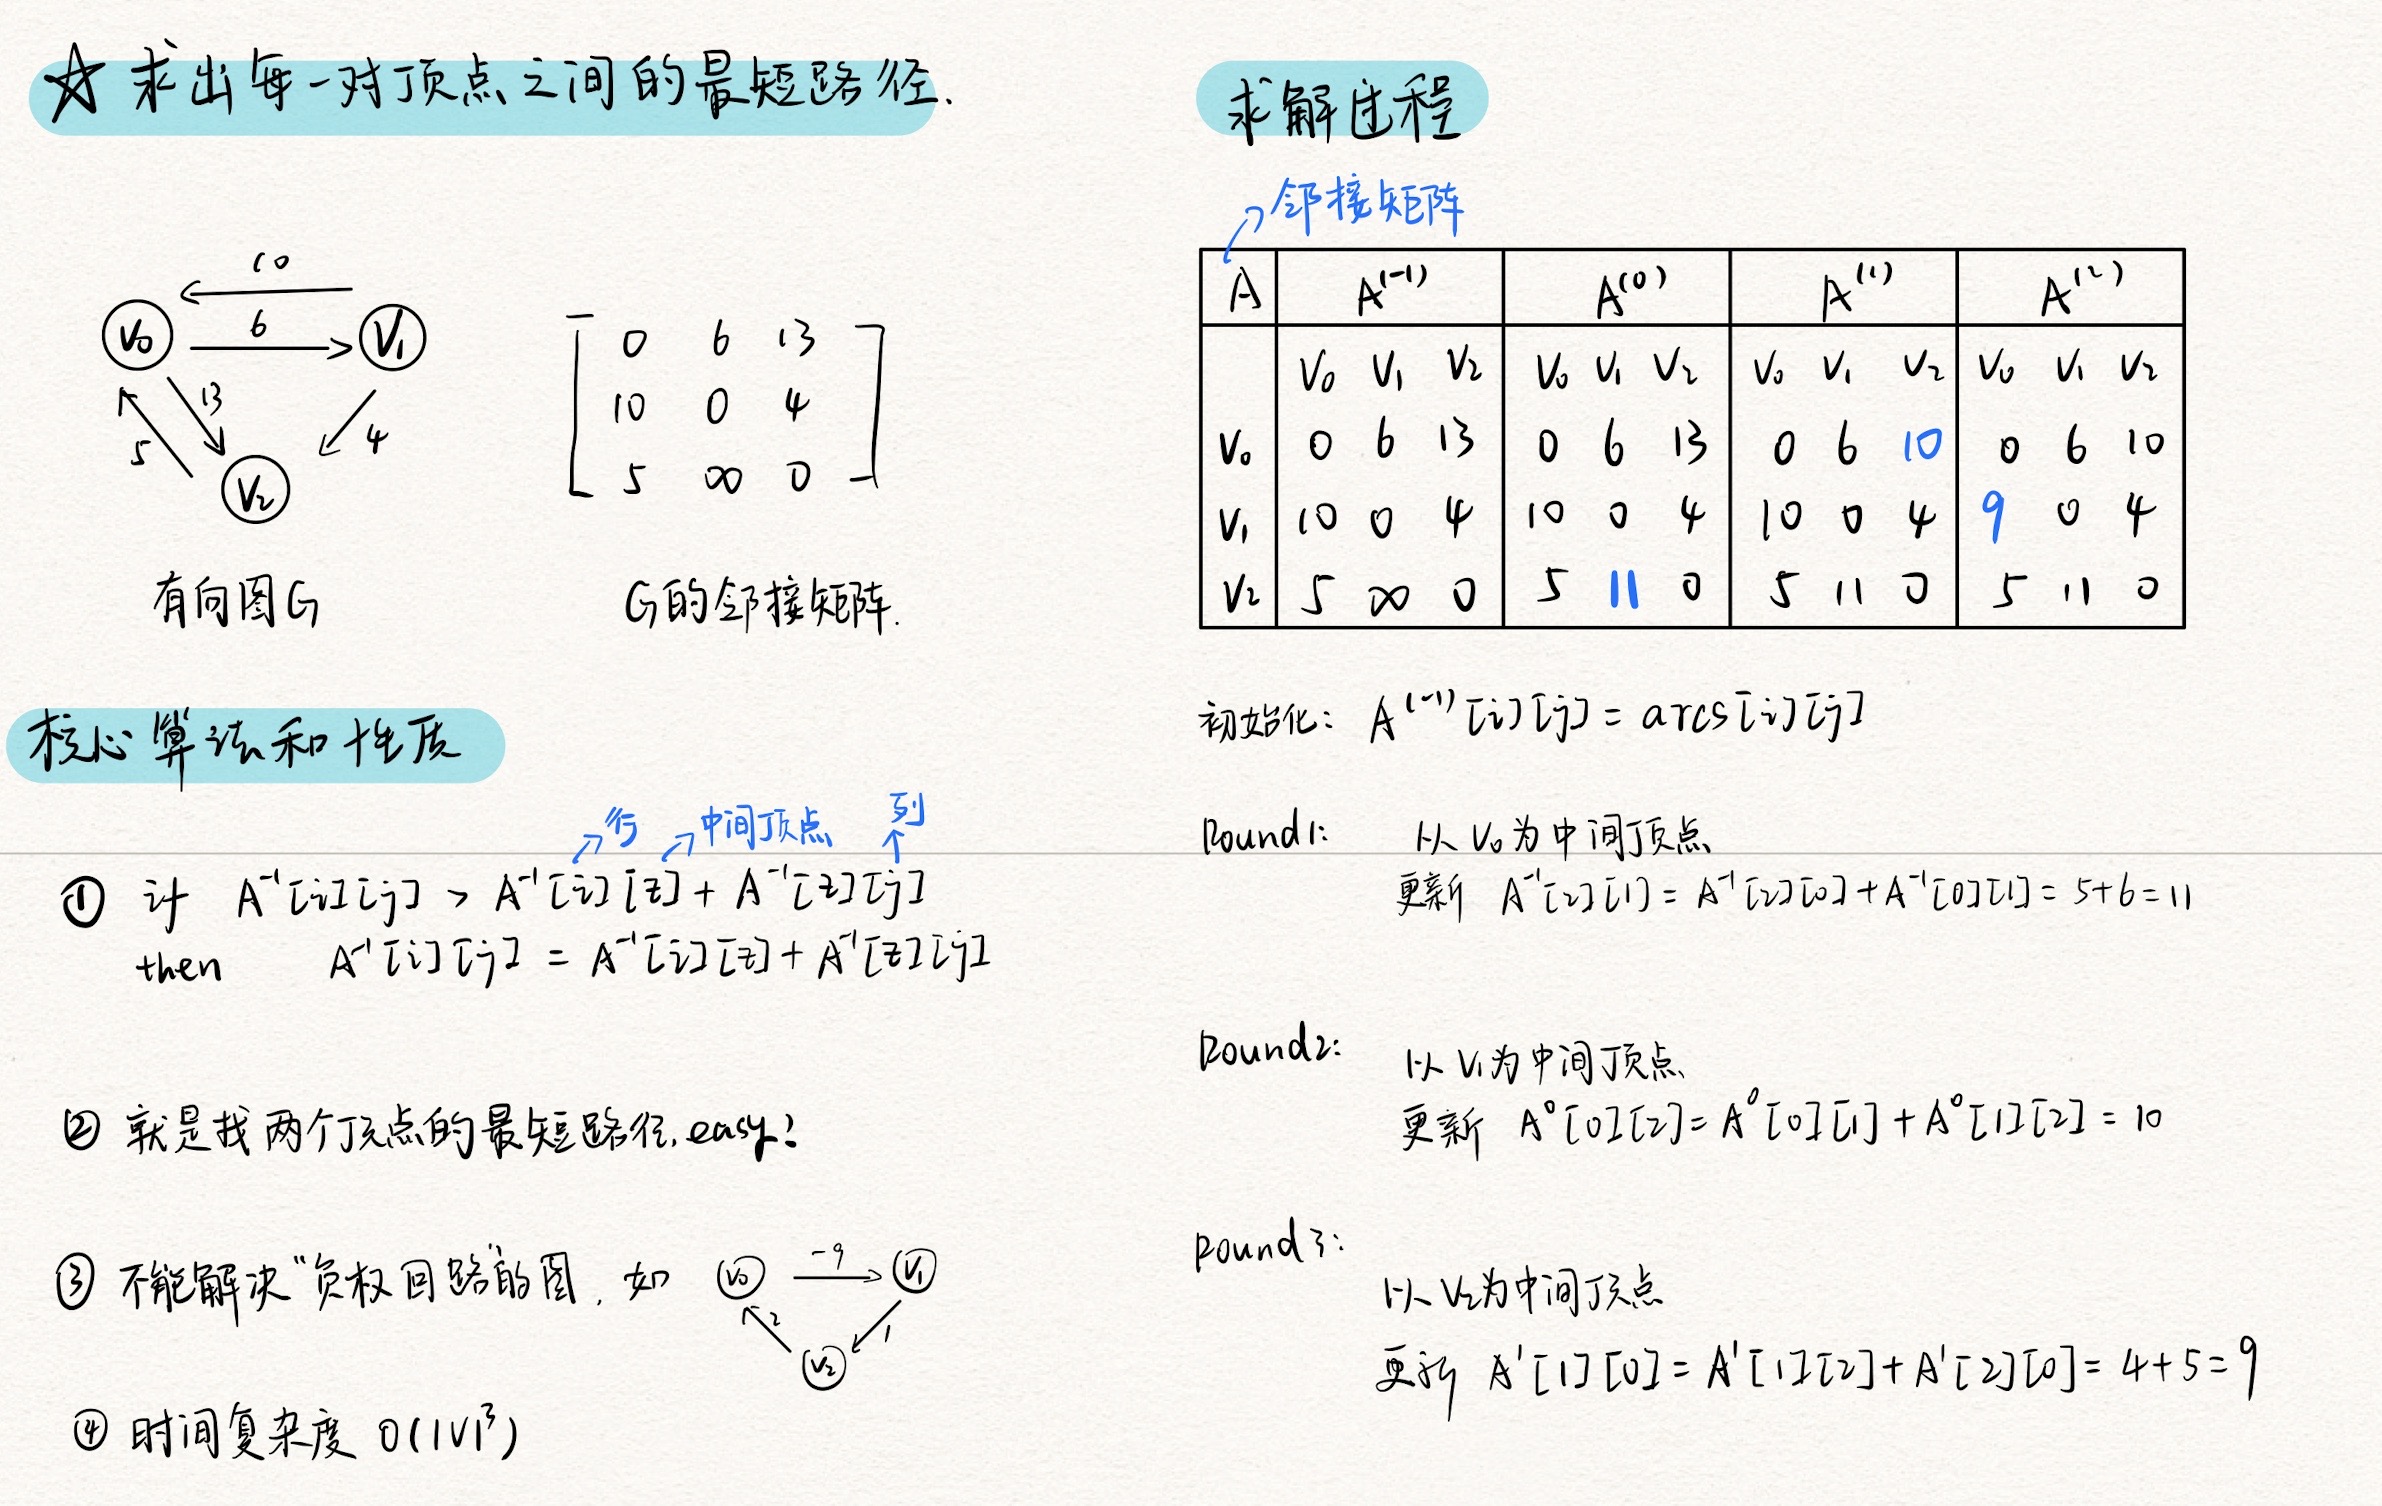 ☆ 求出每一对顶点之间的最短路径.
10
V0 6 V1
13
5 4
V2
有向图G
0 6 13
10 0 4
5 ∞ 0
G的邻接矩阵.
核心算法和性质
行 中间顶点 列
① if A⁻¹[i][j] > A⁻¹[i][z] + A⁻¹[z][j]
then A⁻¹[i][j] = A⁻¹[i][z] + A⁻¹[z][j]
② 就是找两个顶点的最短路径, easy!
③ 不能解决“负权回路”的图, 如
V0 -9 V1
2 1
V2
④ 时间复杂度 O(|V|³)
求解过程
邻接矩阵
A A⁽⁻¹⁾ A⁽⁰⁾ A⁽¹⁾ A⁽²⁾
V0 V1 V2 V0 V1 V2 V0 V1 V2 V0 V1 V2
V0 0 6 13 0 6 13 0 6 10 0 6 10
V1 10 0 4 10 0 4 10 0 4 9 0 4
V2 5 ∞ 0 5 11 0 5 11 0 5 11 0
初始化: A⁽⁻¹⁾[i][j] = arcs[i][j]
Round1: 以V0为中间顶点
更新 A⁻¹[2][1] = A⁻¹[2][0] + A⁻¹[0][1] = 5+6=11
Round2: 以V1为中间顶点
更新 A⁰[0][2] = A⁰[0][1] + A⁰[1][2] = 10
Round3:
以V2为中间顶点
更新 A¹[1][0] = A¹[1][2] + A¹[2][0] = 4+5=9